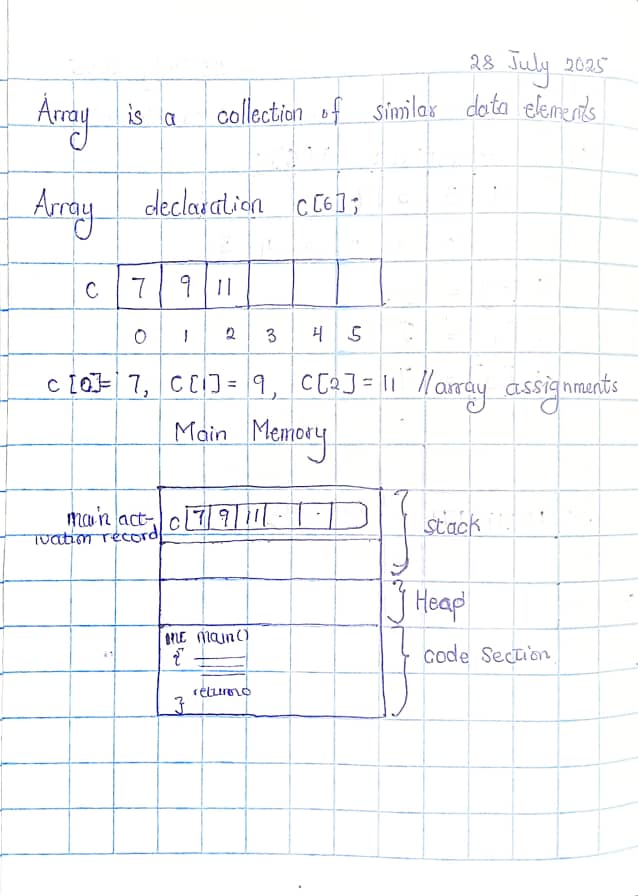 28 July 2025
Array is a collection of similar data elements
Array declaration c[6];
c 7 9 11
0 1 2 3 4 5
c[0]= 7, c[1]= 9, c[2]= 11 //array assignments
Main Memory
main act-
ivation record
c 7 9 11 . . 
stack
Heap
int main()
{
return 0
}
code section